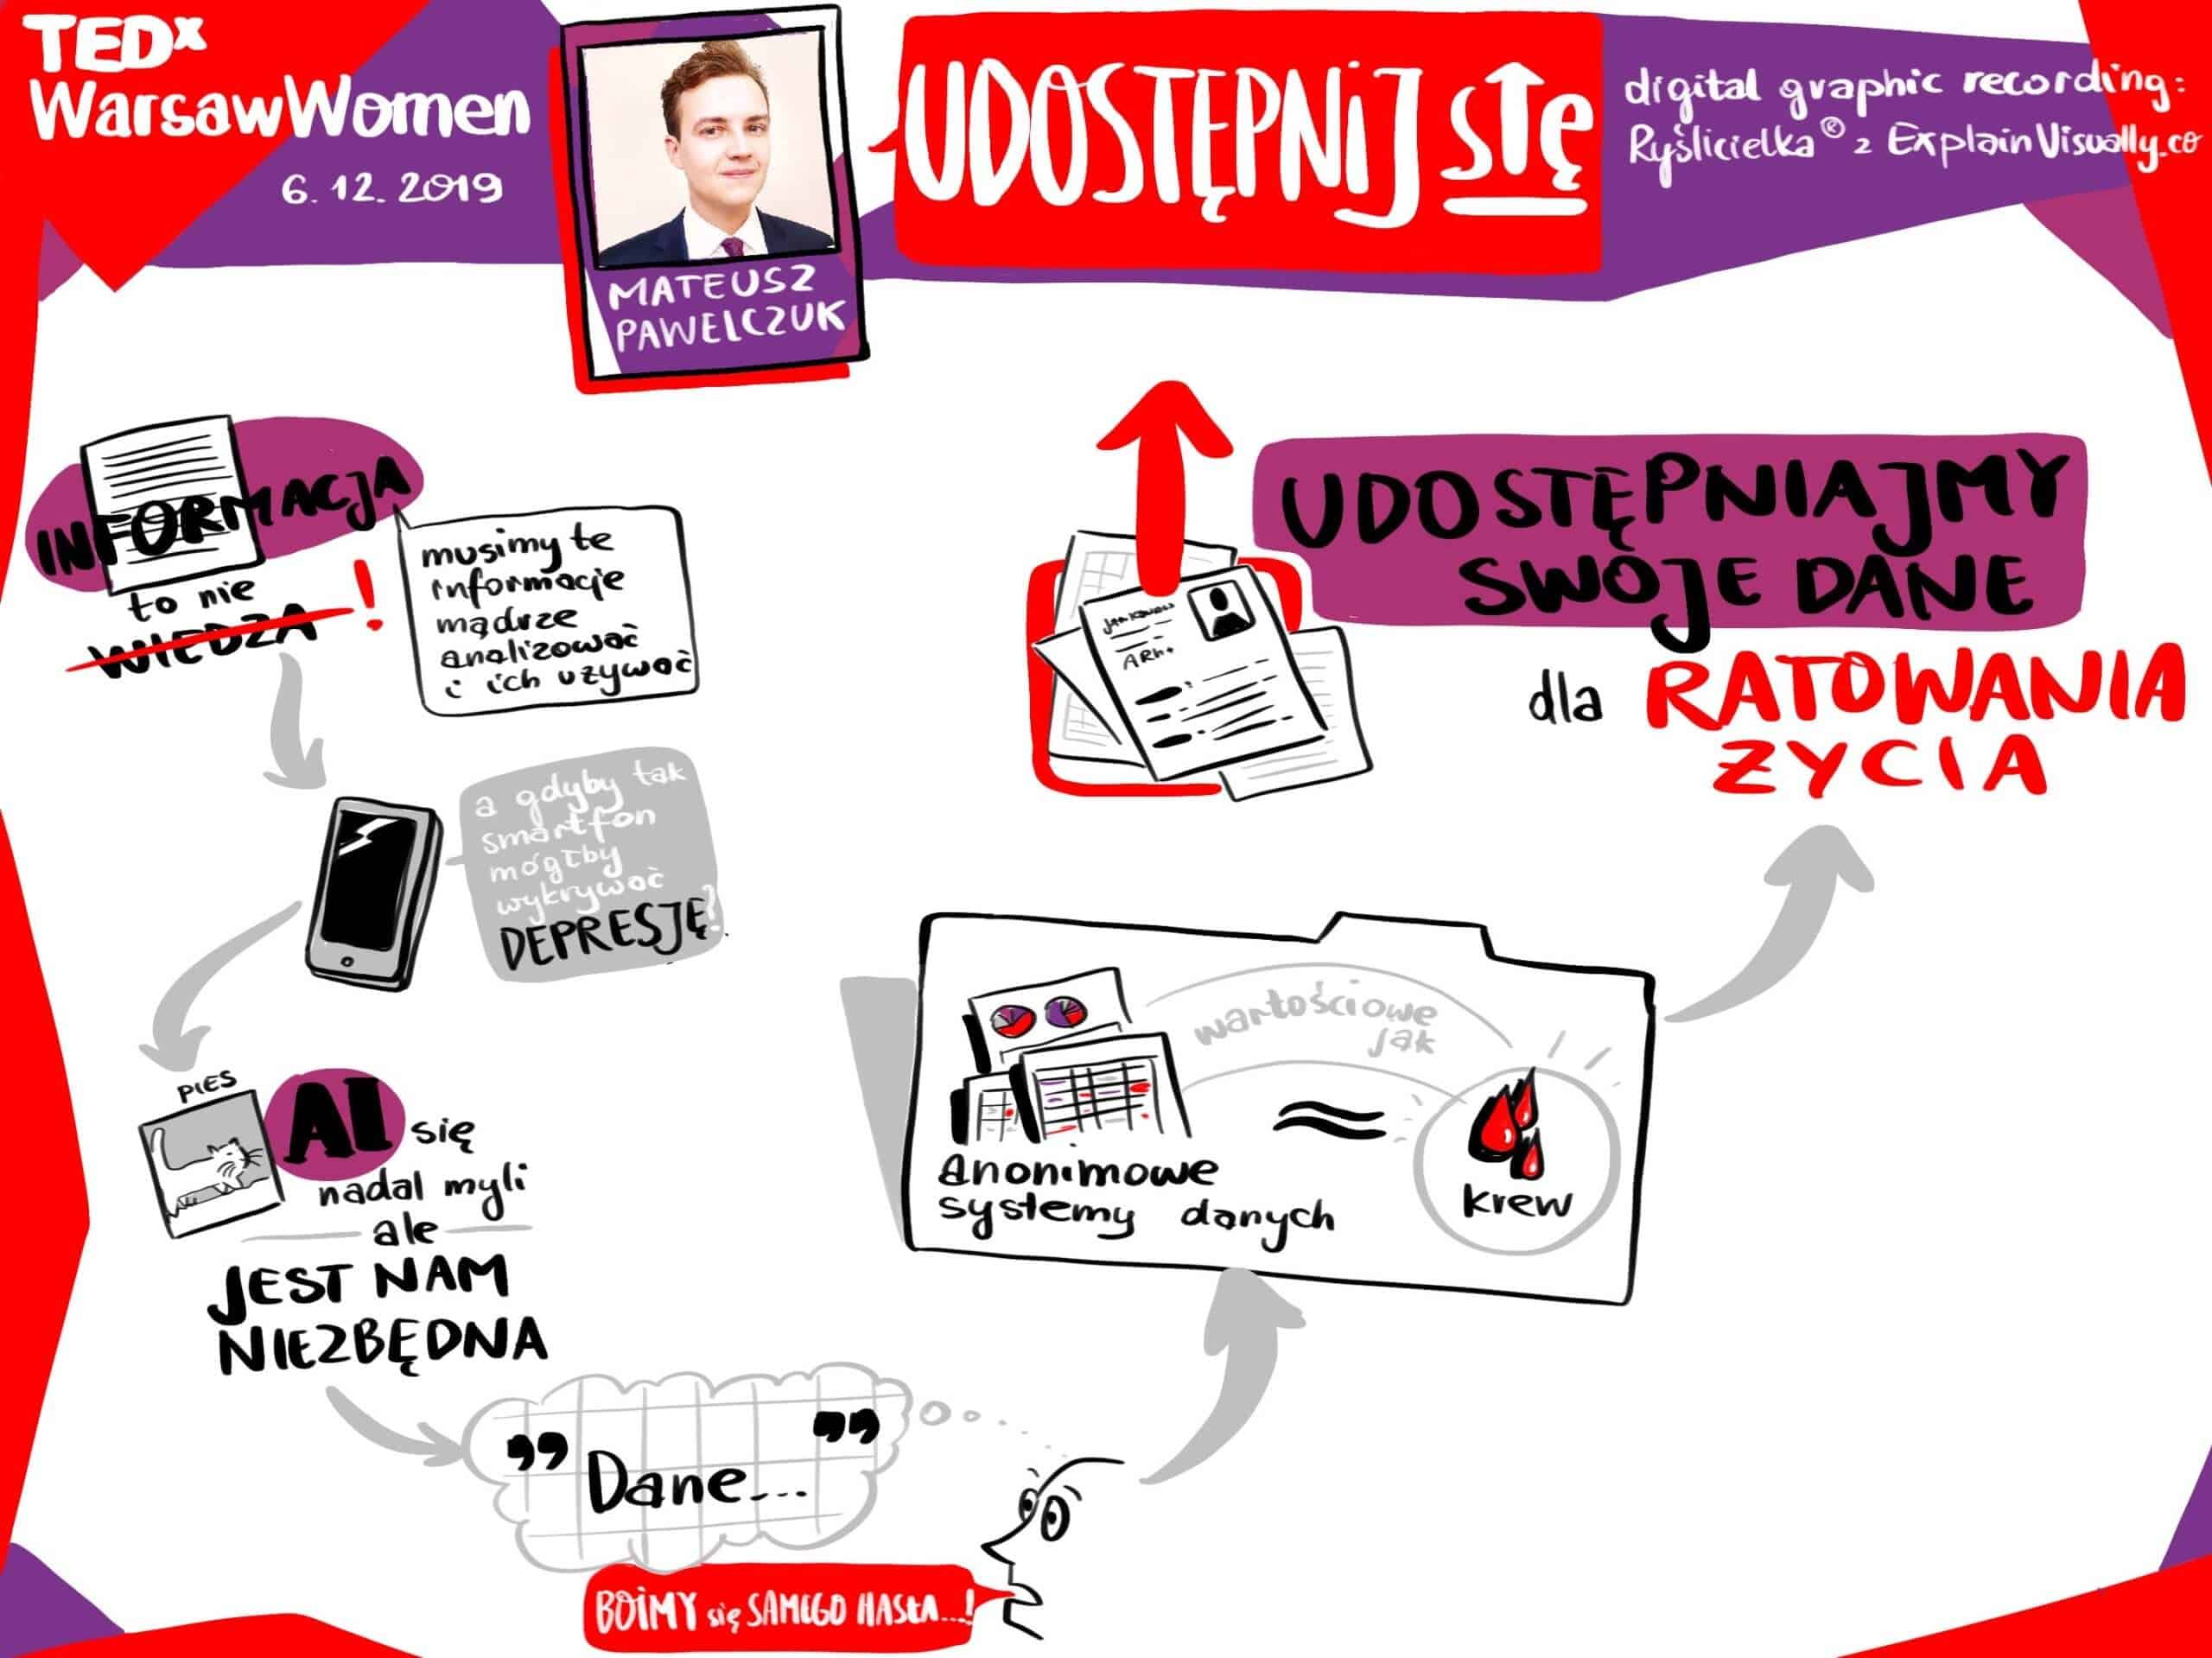 TEDx
WarsawWomen
6. 12. 2019
MATEUSZ
PAWELCZUK
UDOSTĘPNIJ SIĘ
digital graphic recording:
Ryślicielka® z ExplainVisually.co
INFORMACJA
to nie
WIEDZA !
musimy te
informacje
mądrze
analizować
i ich używać
a gdyby tak
smartfon
mógłby
wykrywać
DEPRESJĘ?
PIES
AI się
nadal myli
ale
JEST NAM
NIEZBĘDNA
„ Dane... ”
BOIMY się SAMEGO HASŁA...!
wartościowe
jak
≈
anonimowe
systemy danych
krew
ARh+
UDOSTĘPNIAJMY
SWOJE DANE
dla RATOWANIA
ŻYCIA